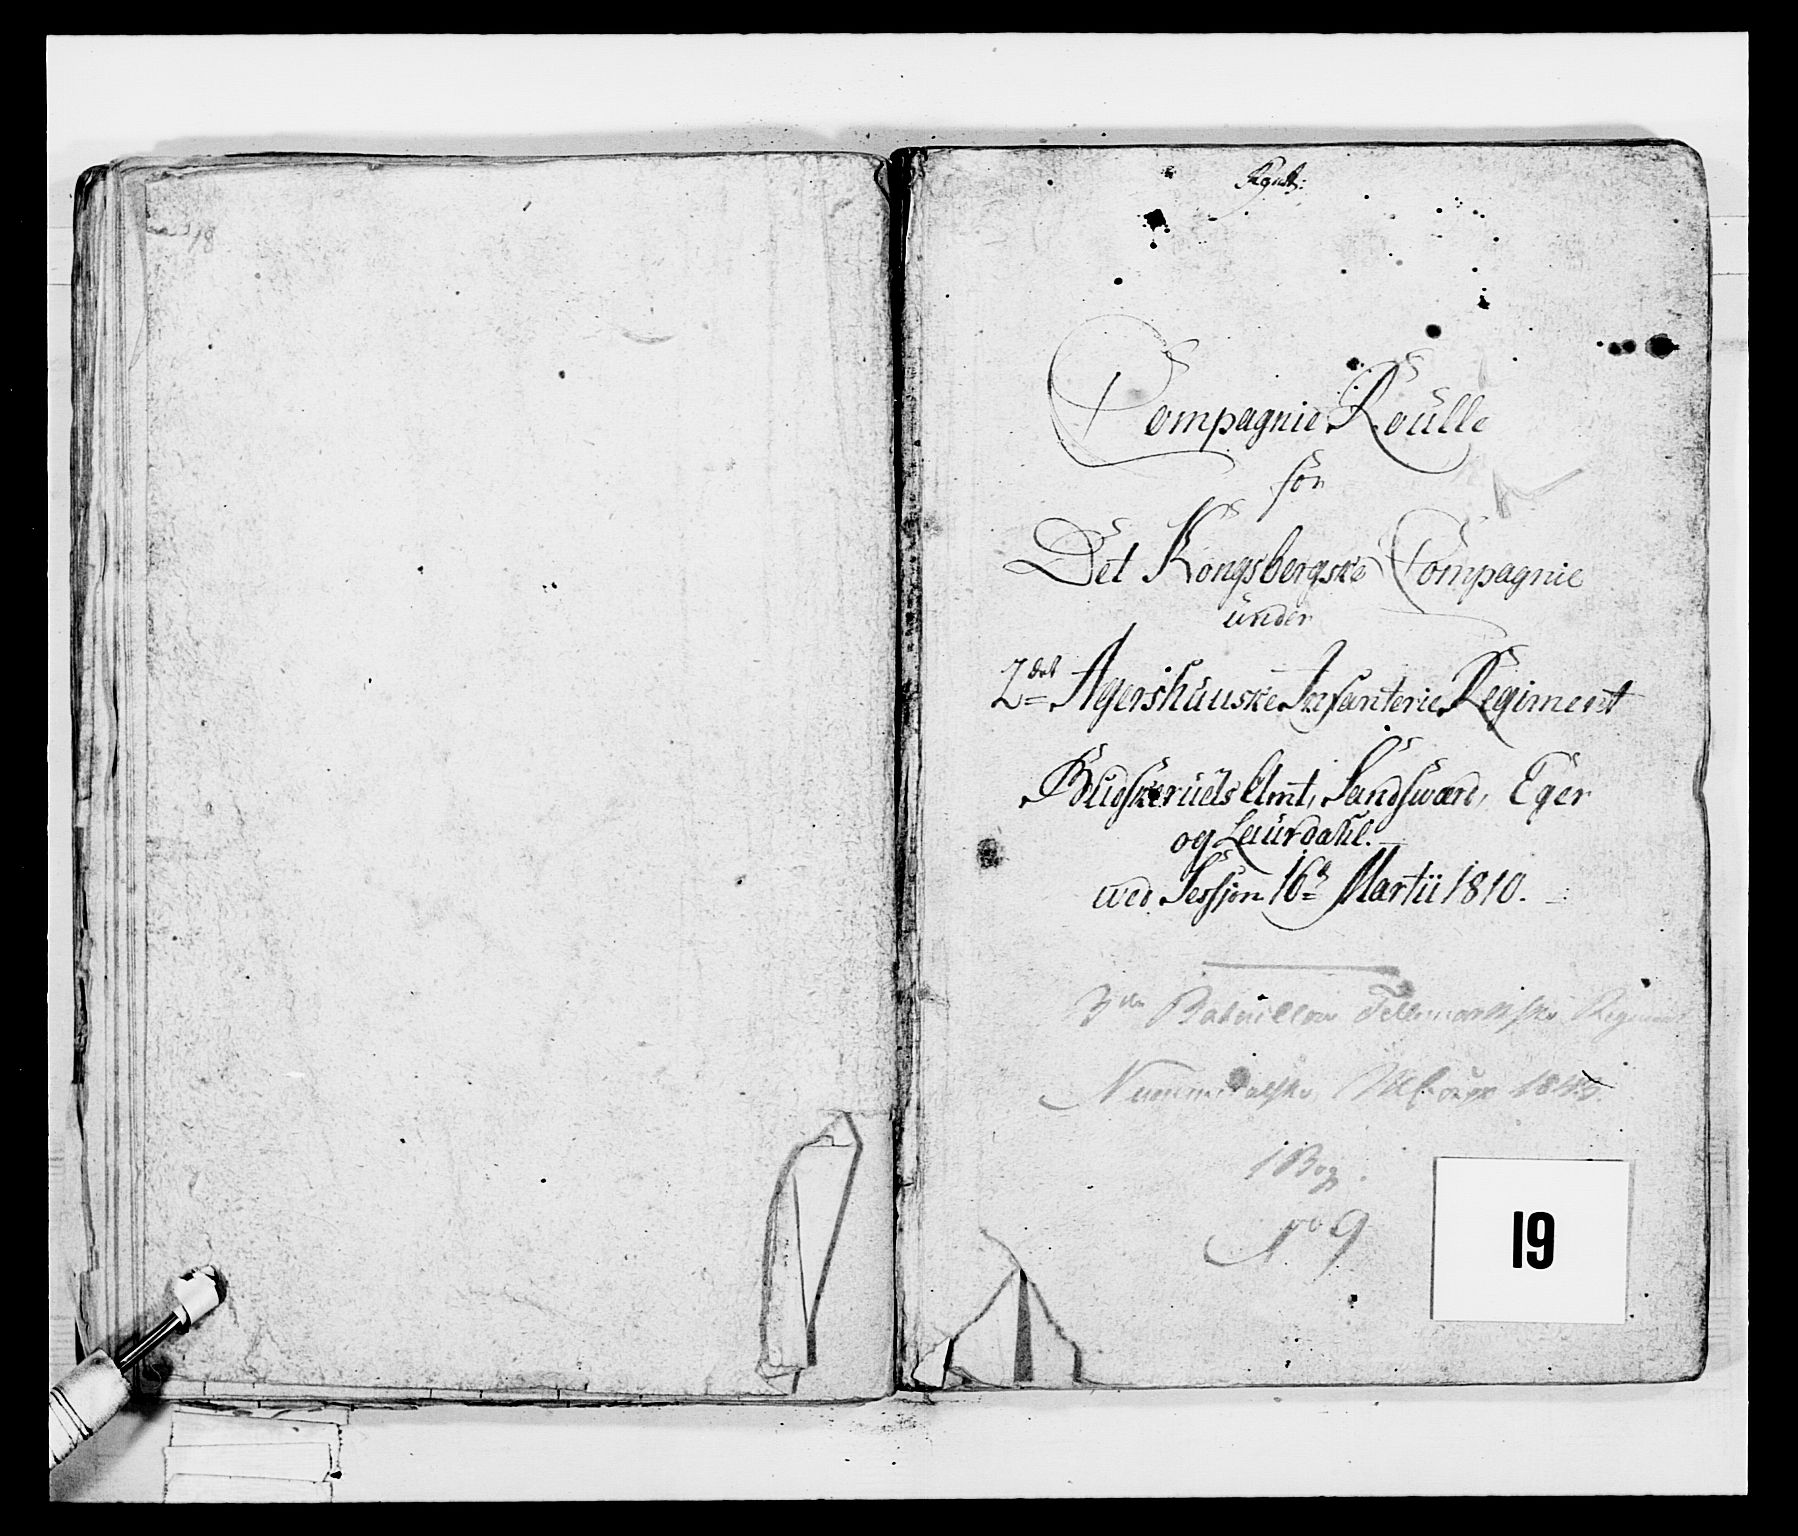 18
Compagnie Roulle
for
Det Kongsbergske Compagnie
under
2det Agershuuske Infanterie Regiment
Budskeruds Amt, Sandsværd, Eger
og Laurdahl.
wed Session 16de Martii 1810.
3die Batallion Tellemarkske Regiment
Nummedalske
1 Bog
No 9
19